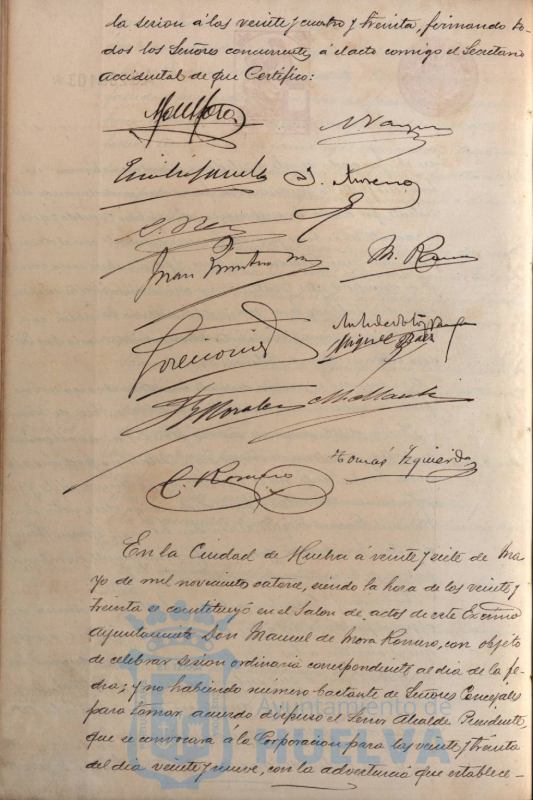 la sesion á las veinte y cuatro y treinta, firmando to-
dos los Señores concurrentes al acto comigo el Secretario
accidental de que Certifico:
J. Moreno
M. Ra
Juan Quintero
Antide Vázquez
Miguel Báez
F. Morales
Tomás Izquierdo
C. Romero
En la Ciudad de Huelva á veinte y siete de Ma-
yo de mil novecientos catorce, siendo la hora de las veinte y
treinta se constituyó en el Salon de actos de este Excmo
Ayuntamiento Don Manuel de Mora Romero, con objeto
de celebrar sesion ordinaria correspondiente al dia de la fe-
cha; y no habiendo número bastante de Señores Concejales
para tomar acuerdo dispuso el Señor Alcalde Presidente,
que se convocara a la Corporacion para las veinte y treinta
del dia veinte y nueve, con la advertencia que establece-
Ayuntamiento de
HUELVA